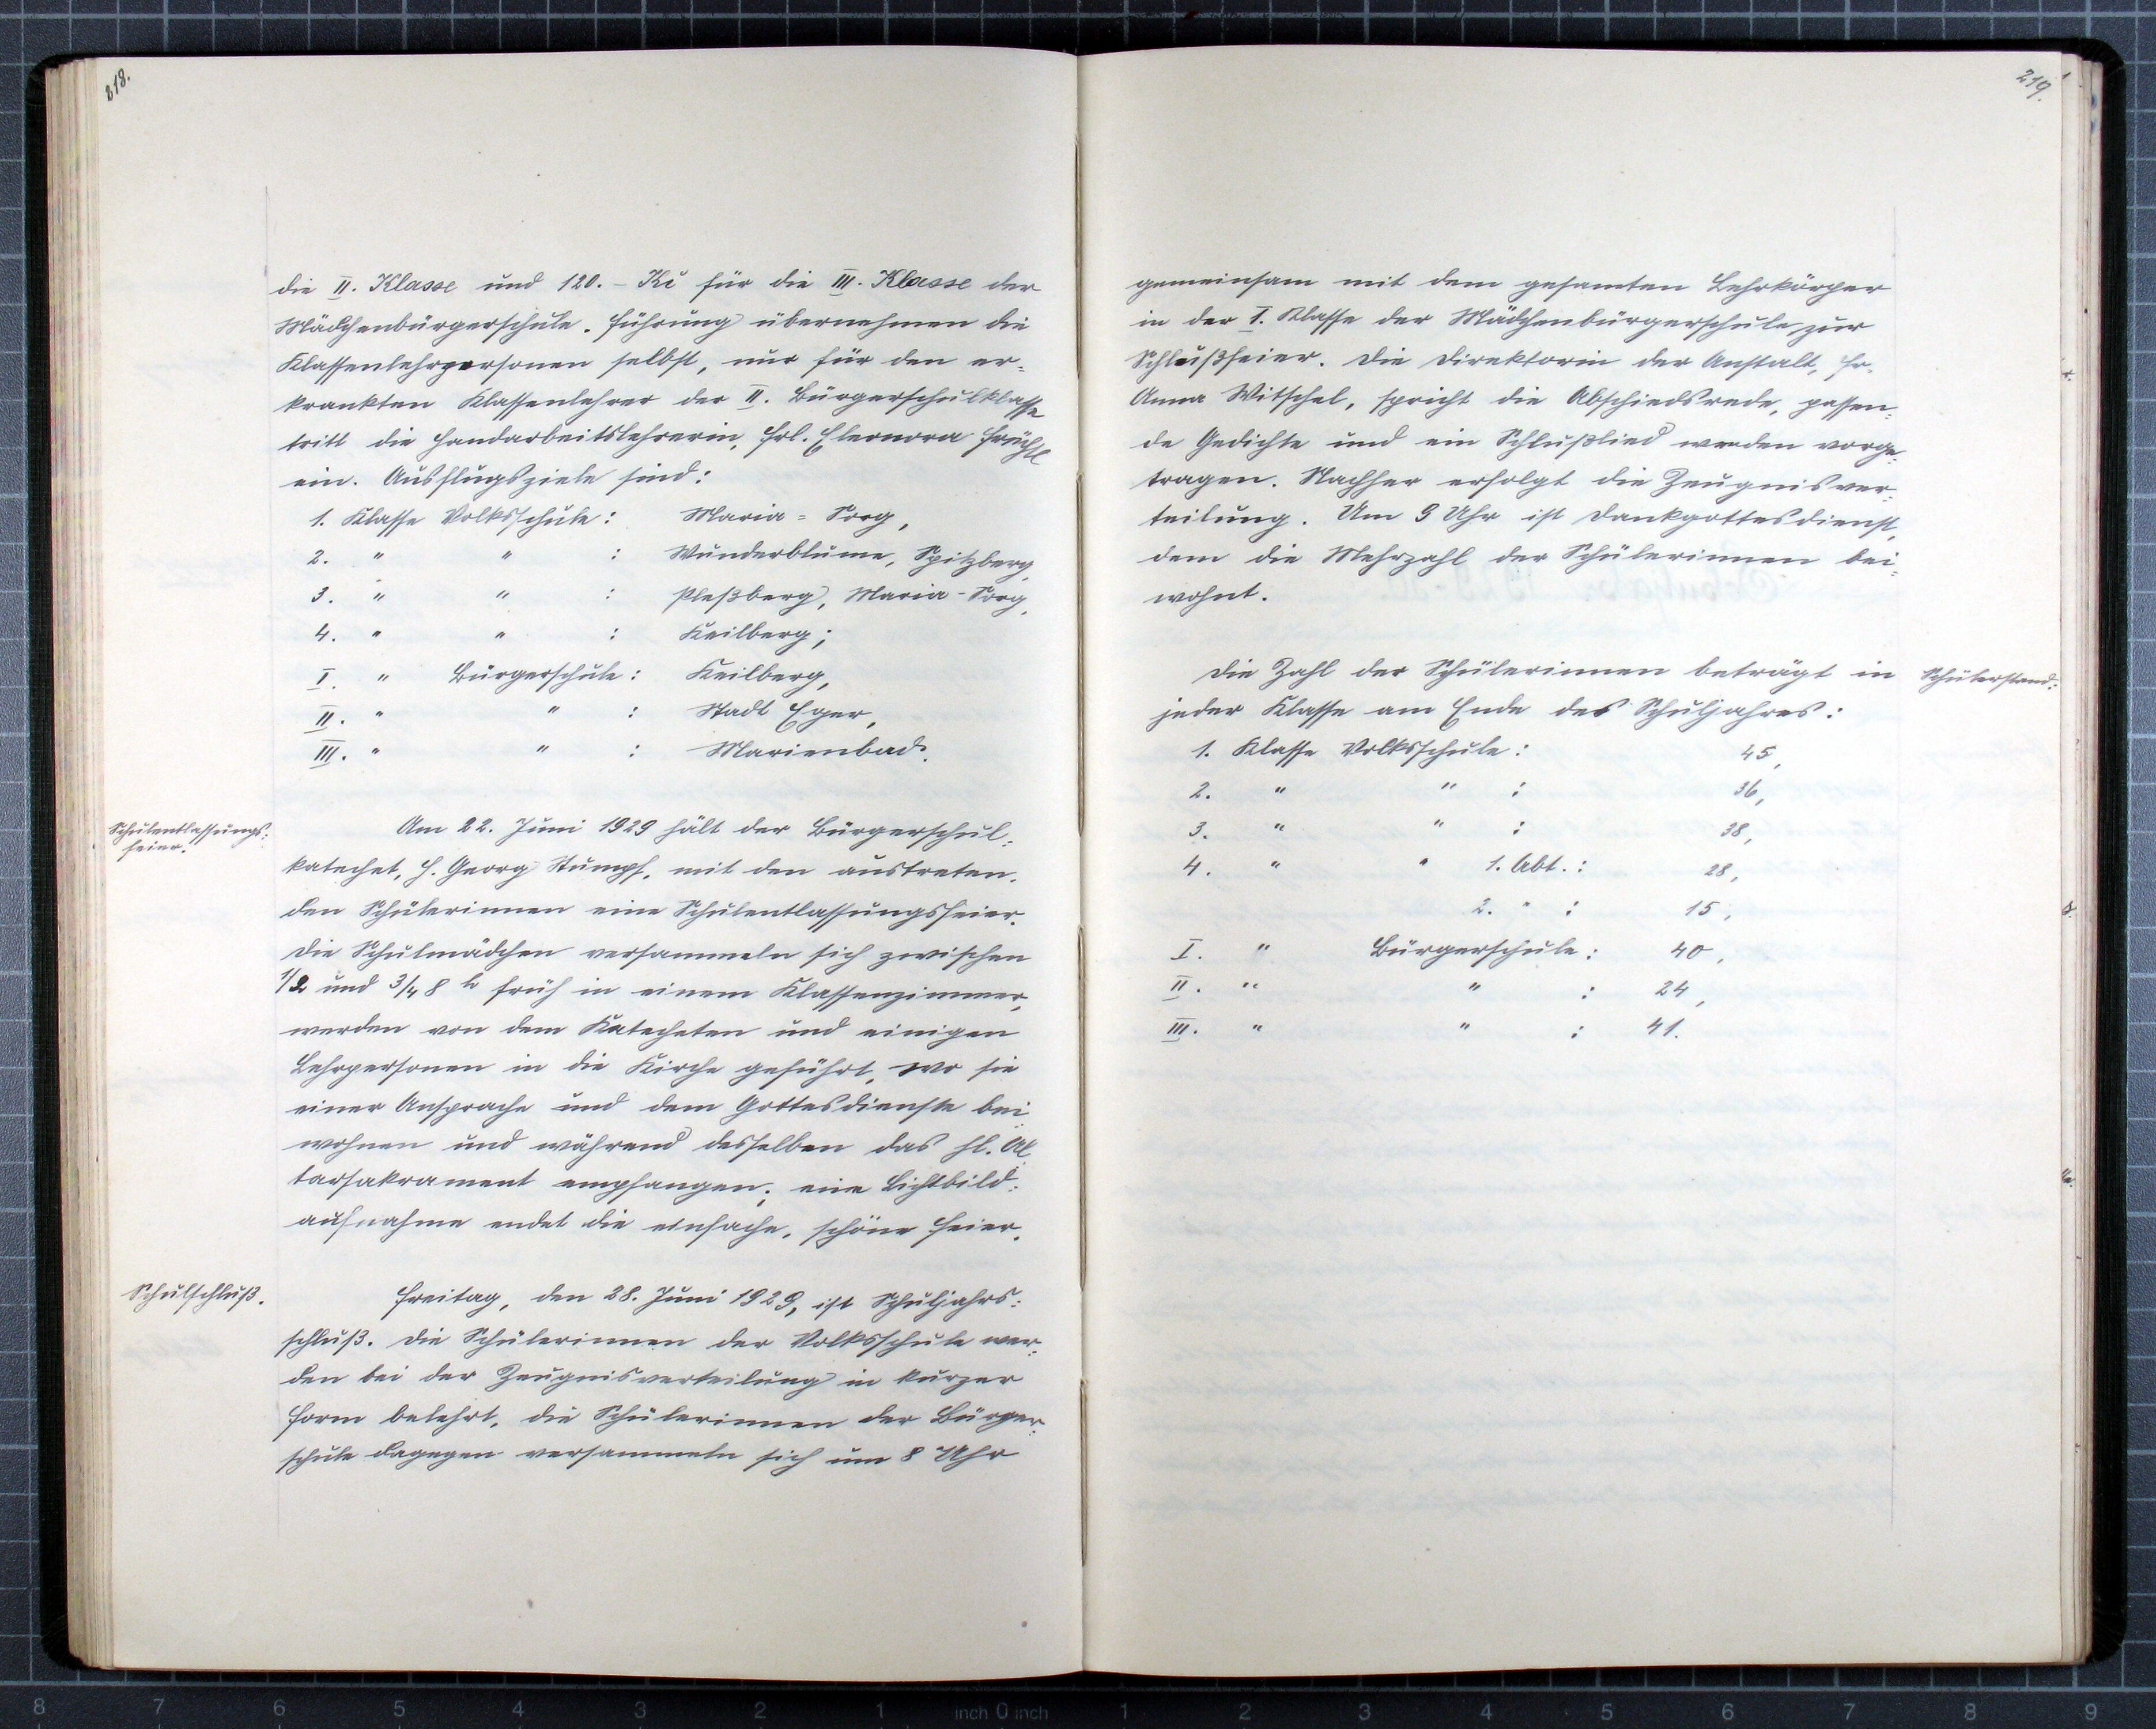 218.
die II. Klasse und 120.- Kč für die III. Klasse der
Mädchenbürgerschule. Führung übernehmen die
Klassenlehrpersonen selbst, nur für den er=
krankten Klassenlehrer der II. Bürgerschulklasse
tritt die Handarbeitslehrerin, Frl. Eleonora Früchtl
ein. Ausflugsziele sind:
1. Klasse Volksschule: Maria=Sorg,
2. " " : Wunderblume, Spitzberg,
3. " " : Pleßberg, Maria-Sorg,
4. " " : Keilberg;
I. " Bürgerschule: Keilberg,
II. " " : Stadt Eger,
III. " " : Marienbad.
Schulentlassungs=
feier.
Am 22. Juni 1929 hält der Bürgerschul=
katechet, H. Georg Stumpf, mit den austreten=
den Schülerinnen eine Schulentlassungsfeier.
Die Schulmädchen versammeln sich zwischen
1/2 und 3/4 8 h früh in einem Klassenzimmer,
werden von dem Katecheten und einigen
Lehrpersonen in die Kirche geführt, wo sie
einer Ansprache und dem Gottesdienste bei=
wohnen und während desselben das hl. Al=
tarsakrament empfangen; eine Lichtbild=
aufnahme endet die einfache, schöne Feier.
Schulschluß.
Freitag, den 28. Juni 1929, ist Schuljahrs=
schluß. Die Schülerinnen der Volksschule wer=
den bei der Zeugnisverteilung in kurzer
Form belehrt, die Schülerinnen der Bürger=
schule dagegen versammeln sich um 8 Uhr
219.
gemeinsam mit dem gesamten Lehrkörper
in der I. Klasse der Mädchenbürgerschule zur
Schlußfeier. Die Direktorin der Anstalt, Fr.
Anna Witschel, spricht die Abschiedsrede, passen=
de Gedichte und ein Schlußlied werden vorge=
tragen. Nachher erfolgt die Zeugnisver=
teilung. Um 9 Uhr ist Dankgottesdienst,
dem die Mehrzahl der Schülerinnen bei=
wohnt.
Die Zahl der Schülerinnen beträgt in
Schülerstand:
jeder Klasse am Ende des Schuljahres:
1. Klasse Volksschule: 45,
2. " " : 36,
3. " " : 38,
4. " " 1. Abt.: 28,
2. " : 15,
I. " Bürgerschule: 40,
II. " " : 24,
III. " " : 41.
8 7 6 5 4 3 2 1 inch 0 inch 1 2 3 4 5 6 7 8 9